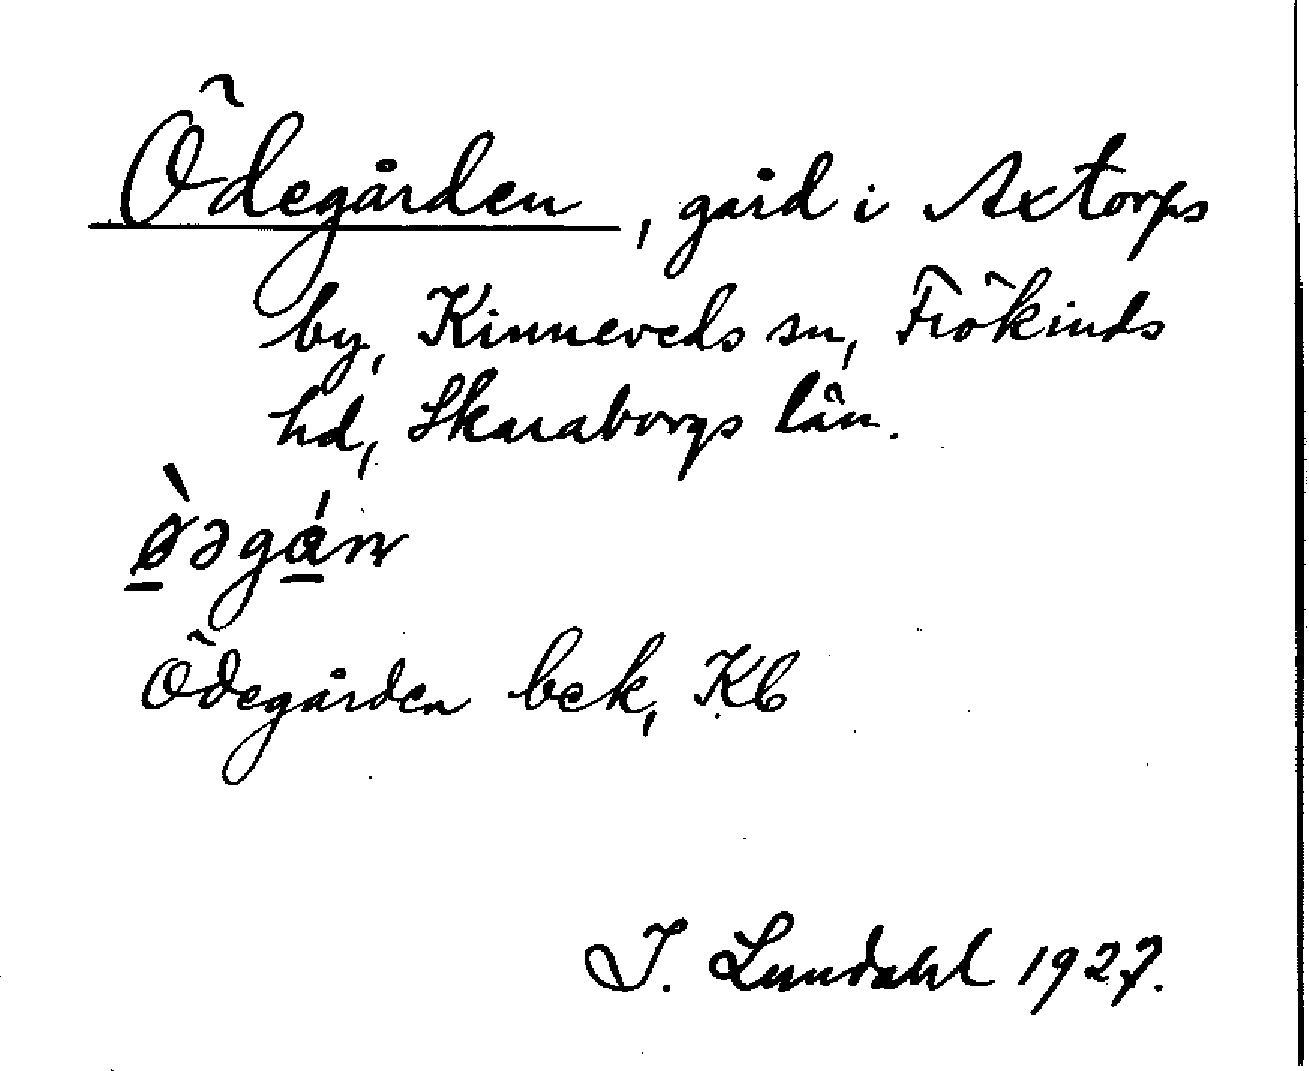 Ödegården, gård i Axtorps
by, Kinneveds sn, Frökinds
hd, Skaraborgs län.
ø̀əgán
Ödegården bek, Kb
I. Lundahl 1927.